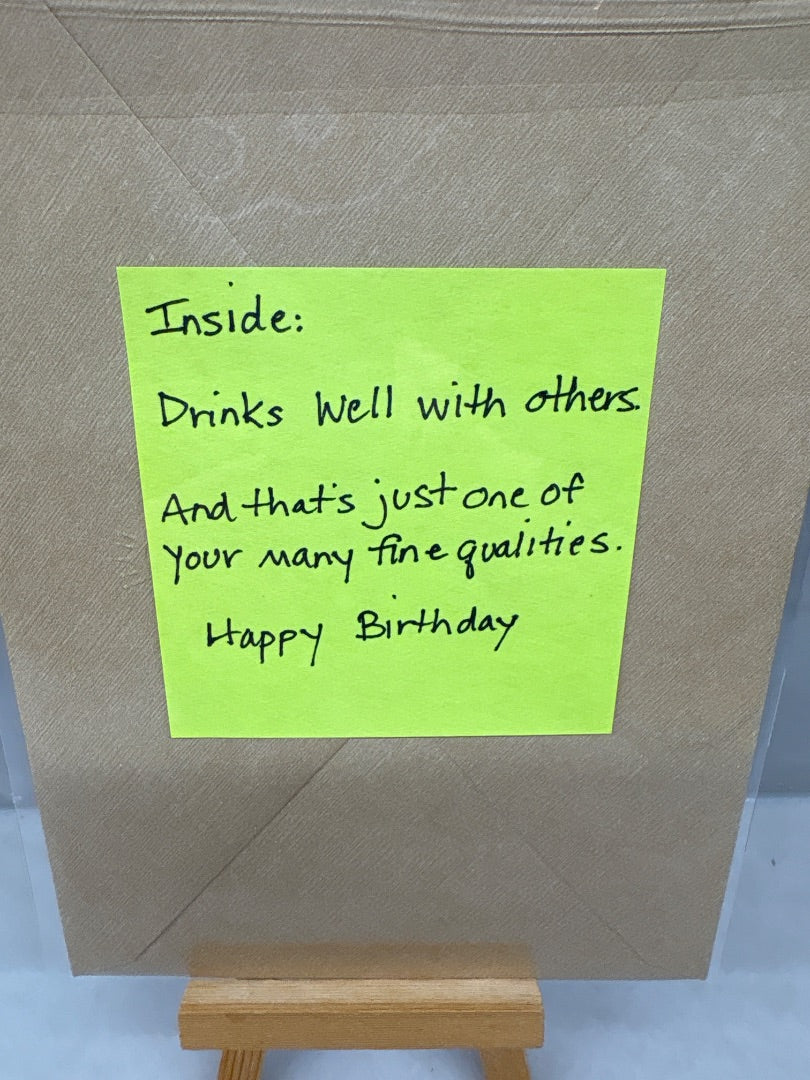 Inside:
Drinks Well with others.
And that's just one of
your many fine qualities.
Happy Birthday